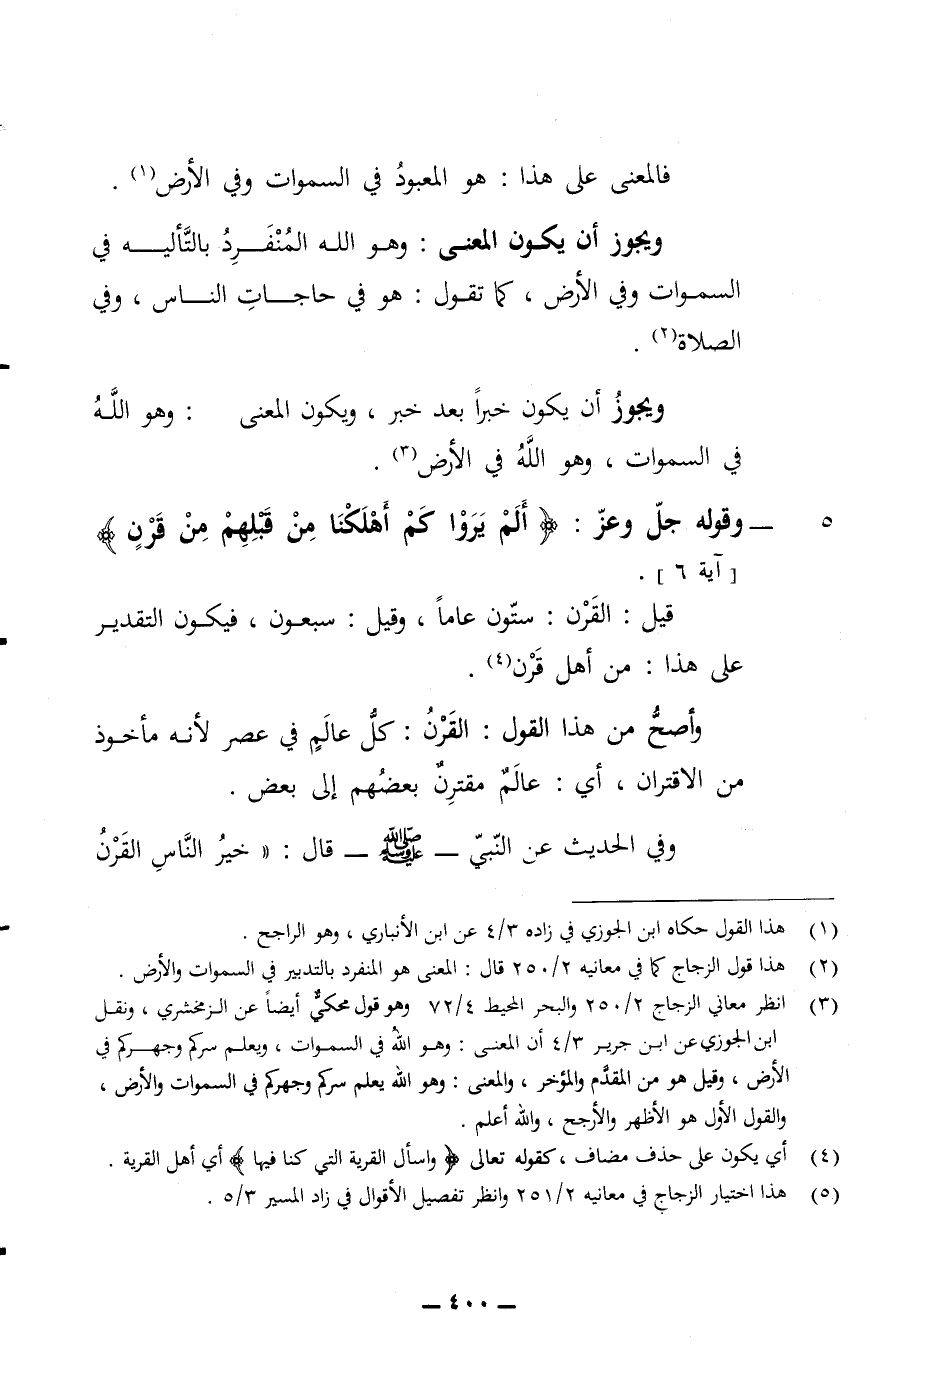 فالمعنى على هذا : هو المعبودُ في السموات وفي الأرض(١) .
ويجوز أن يكون المعنى : وهو الله المُنْفَرِدُ بالتَّأليه في
السموات وفي الأرض ، كما تقول : هو في حاجاتِ الناس ، وفي
الصلاة(٢) .
ويجوزُ أن يكون خبراً بعد خبر ، ويكون المعنى : وهو اللَّهُ
في السموات ، وهو اللَّهُ في الأرض(٣) .
٥ ــ وقوله جلّ وعزّ : ﴿ أَلَمْ يَرَوْا كَمْ أَهْلَكْنَا مِنْ قَبْلِهِمْ مِنْ قَرْنٍ ﴾
[ آية ٦ ] .
قيل : القَرْن : ستّون عاماً ، وقيل : سبعون ، فيكون التقدير
على هذا : من أهل قَرْن(٤) .
وأصحُّ من هذا القول : القَرْنُ : كلُّ عالَمٍ في عصر لأنه مأخوذ
من الاقتران ، أي : عالَمٌ مقترِنٌ بعضُهم إلى بعض .
وفي الحديث عن النّبيّ ــ ﷺ ــ قال : « خيرُ النَّاسِ القَرْنُ
(١) هذا القول حكاه ابن الجوزي في زاده ٤/٣ عن ابن الأنباري ، وهو الراجح .
(٢) هذا قول الزجاج كما في معانيه ٢٥٠/٢ قال : المعنى هو المنفرد بالتدبير في السموات والأرض .
(٣) انظر معاني الزجاج ٢٥٠/٢ والبحر المحيط ٧٢/٤ وهو قول محكيٌّ أيضاً عن الزمخشري ، ونقل
ابن الجوزي عن ابن جرير ٤/٣ أن المعنى : وهو اللهُ في السموات ، ويعلم سركم وجهركم في
الأرض ، وقيل هو من المقدَّم والمؤخر ، والمعنى : وهو الله يعلم سركم وجهركم في السموات والأرض ،
والقول الأول هو الأظهر والأرجح ، والله أعلم .
(٤) أي يكون على حذف مضاف ، كقوله تعالى ﴿ واسأل القرية التي كنا فيها ﴾ أي أهل القرية .
(٥) هذا اختيار الزجاج في معانيه ٢٥١/٢ وانظر تفصيل الأقوال في زاد المسير ٥/٣ .
ــ ٤٠٠ ــ